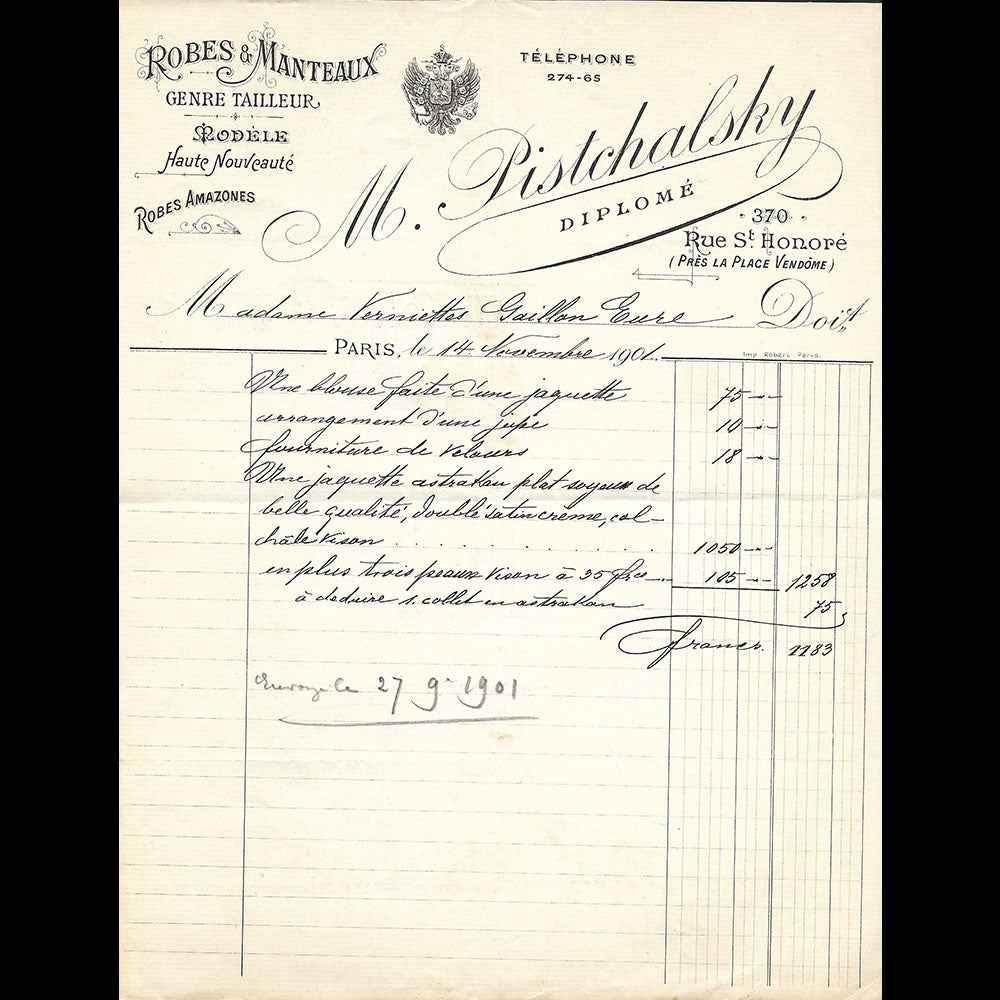 ROBES & MANTEAUX
GENRE TAILLEUR
MODÈLE
Haute Nouveauté
ROBES AMAZONES
TÉLÉPHONE
274-65
M. Pistchalsky
DIPLOMÉ
370
Rue St. Honoré
(PRÈS LA PLACE VENDÔME)
Madame Verniettes Gaillon Eure Doit
PARIS, le 14 Novembre 1901.
Imp. Robert. Paris.
Une blouse faite d'une jaquette 75
arrangement d'une jupe 10
fourniture de velours 18
Une jaquette astrakan plat soyeux de
belle qualité, doublé satin crème, col-
châle vison . . . . . . . . . . . . 1050
en plus trois peaux vison à 35 frcs 105 1258
à deduire 1. collet en astrakan 75
francs. 1183
27 9. 1901